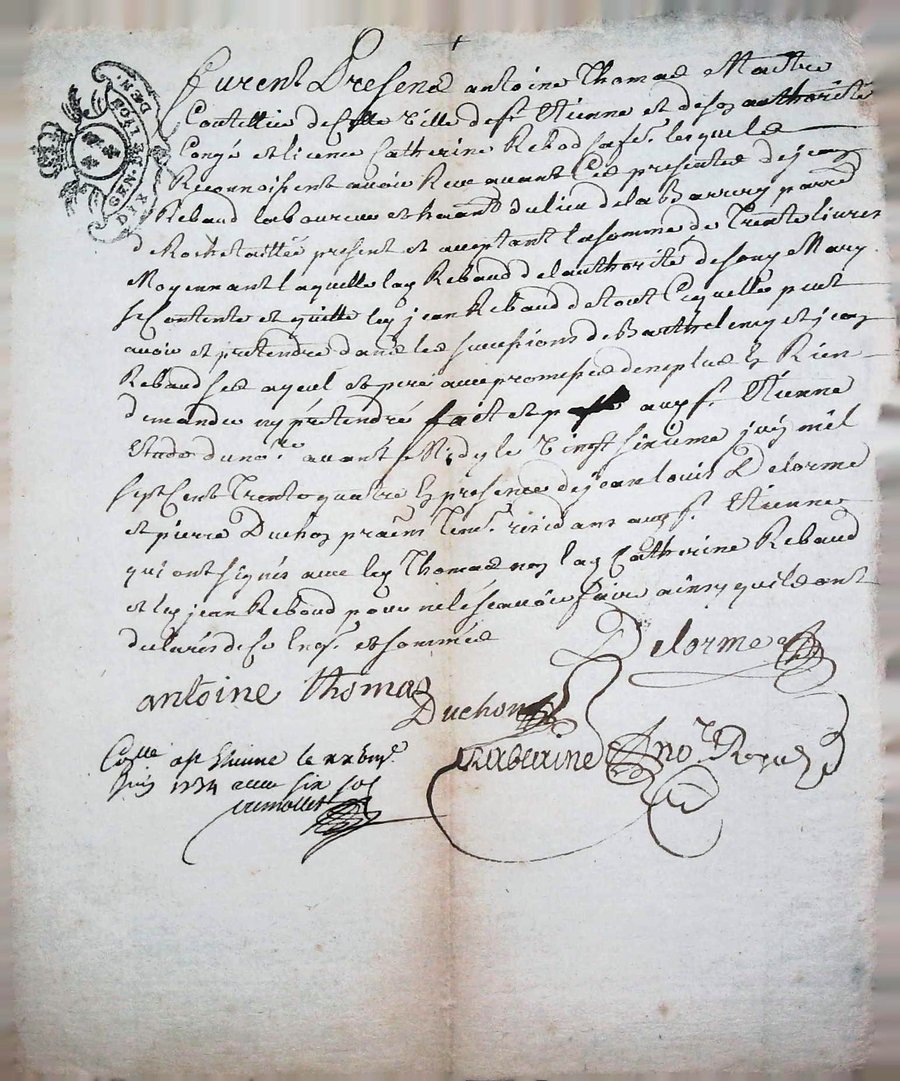 GEN. DE LYON
DIX DEN.
furent Presens antoine Thomas Maitre
Coutellier de cette Ville de st. Etienne et de son authorité
Congé et licence Catherine Rebod sa fe. lesquels
Reconnoissent avoir Receu avant Ces presentes de jean
Rebaud laboureur et habant. du lieu de la Barrery parre
de Rochetaillée present et aceptant la somme de Trente livres
Moyennant laquelle lad Rebaud de lauthorité de son Mary
se Contente et quitte led jean Rebaud de tout Cequelle peut
avoir et pretendre dans les successions de Barthelemy et jean
Rebaud ses ayeul et pere avec promesse de ne plus en Rien
demander ny prétendre fait et p aud st. Etienne
Etude du nore. avant Midy le Vingt sixieme juin mil
sept Cent Trente quatre en presence de jean louis Delorme
et pierre Duchon praciens Tems. residans aud st. Etienne
qui ont signés avec led Thomas non lad Catherine Rebaud
et led jean Rebaud pour ne le scavoir faire ainsy quils ont
declarés de ce Enqs. et sommés
Delorme
antoine thomas
Duchon
nore. Royal
Colle a st Etienne le xxvi
Juin 1734 six sol